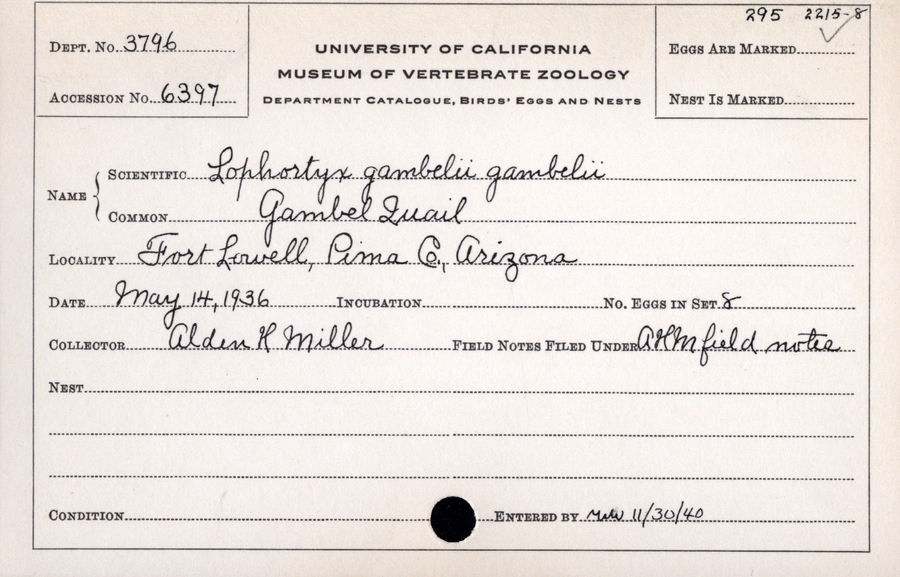 295 2215-8
DEPT. NO. 3796
UNIVERSITY OF CALIFORNIA
EGGS ARE MARKED
MUSEUM OF VERTEBRATE ZOOLOGY
ACCESSION NO. 6397
DEPARTMENT CATALOGUE, BIRDS' EGGS AND NESTS
NEST IS MARKED
NAME
SCIENTIFIC Lophortyx gambelii gambelii
COMMON Gambel Quail
LOCALITY Fort Lowell, Pima Co., Arizona
DATE May 14, 1936 INCUBATION NO. EGGS IN SET 8
COLLECTOR Alden H Miller FIELD NOTES FILED UNDER AHM field notes
NEST
CONDITION ENTERED BY 11/30/40